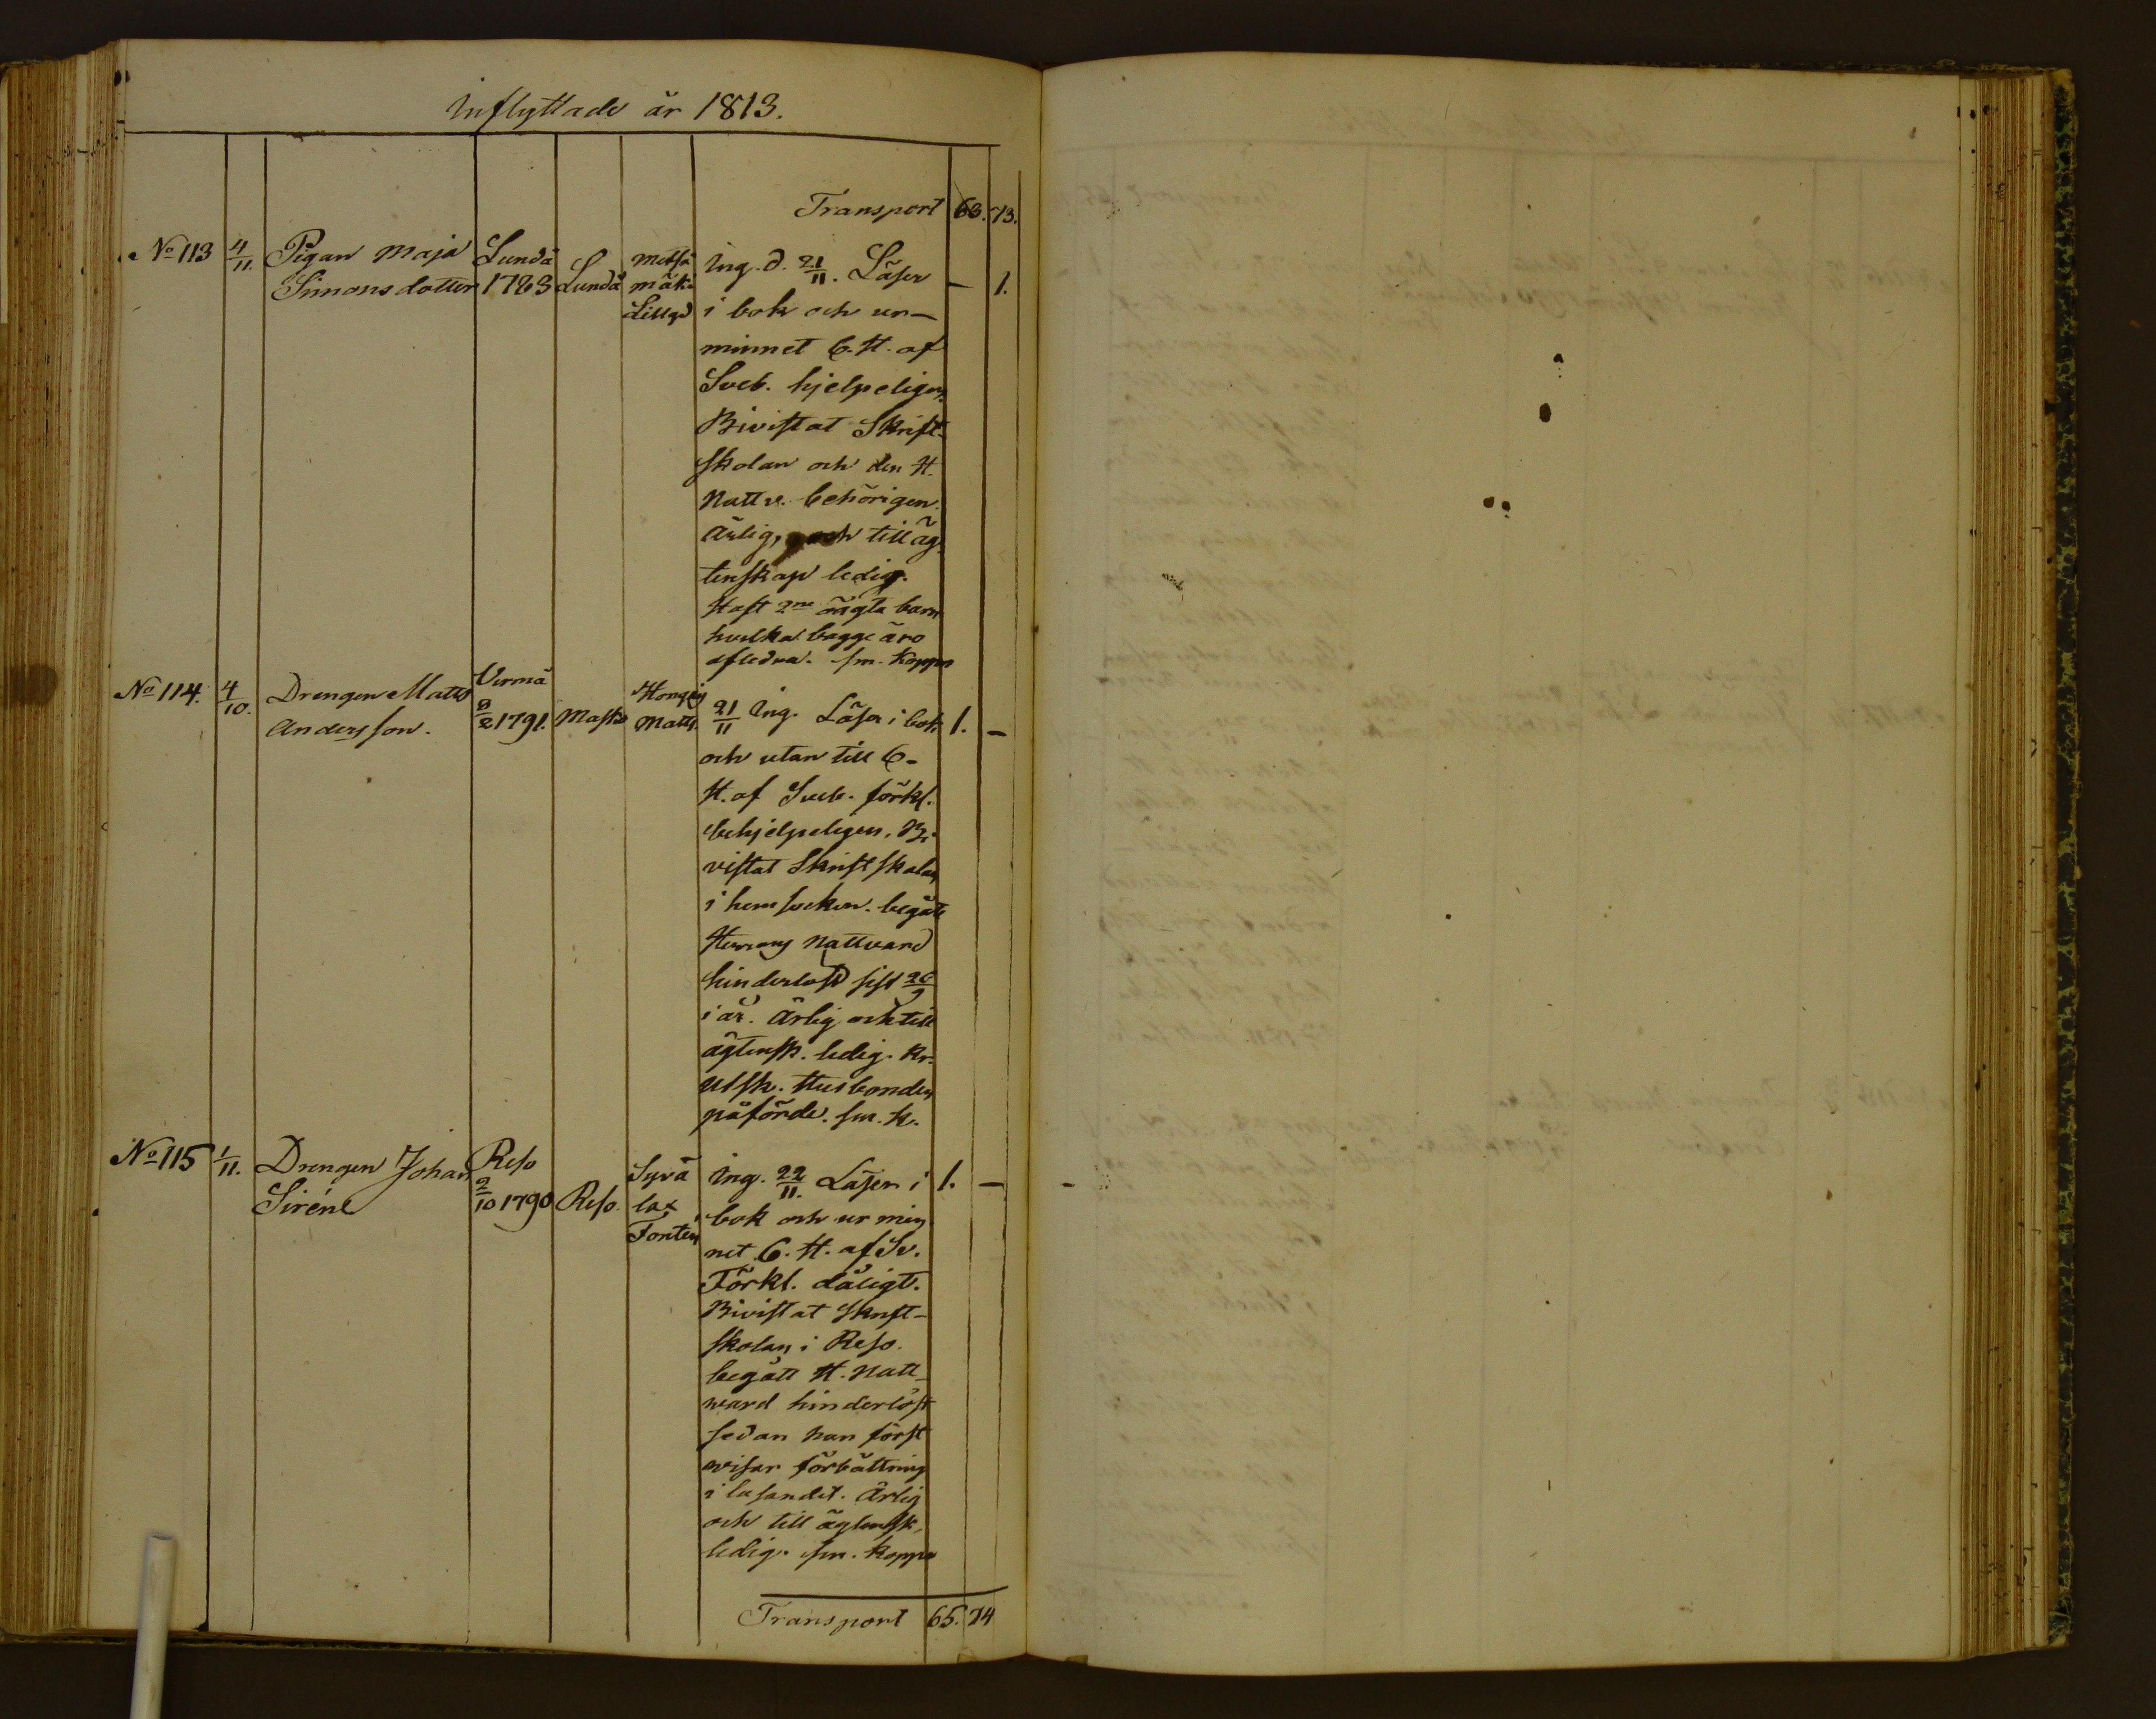 Inflyttade år 1813.
Transport 63. 73.
No 113 4/11. Pigan Maja Lundå Metsä Ing. d. 21/11. Läser
Simonsdotter 1783 Lundå mäki i bok och ur-
Lillgd minnet 6. H. af — 1.
Sveb. hjelpeligen.
Bivistat Skrift-
skolan och den H.
Nattv. behörigen.
Ärlig, och till äg-
tenskap ledig.
Haft 2ne oägta barn
hvilka bägge äro
afledna. sm. Koppor
No 114. 4/10. Drengen Matts Virmå
Andersson. 2/2 1791. Masko Matts. 21/11 Ing. Läser i bok 1. —
och utan till 6-
H. af Sveb. förkl.
behjelpeligen. Bi-
vistat Skriftskolan
i hemsocken. begått
Herrans Nattvard
hinderlöst sist 26/9
i år. Ärlig och till
ägtensk. ledig. Kr.
Utsk. Husbonden
påförde. sm. k.
No 115 1/11. Drengen Johan Reso Syvä Ing. 22/11. Läser i 1. —
Sirén 2/10 1790 Reso. lax bok och ur min
Tonten net 6. H. af Sv.
Förkl. dåligt.
Bivistat Skrift-
skolan i Reso.
begått H. Natt-
ward hinderlöst
sedan han först
wisar förbättring
i läsandet. Ärlig
och till ägtensk.
ledig. sm. koppor
Transport 65. 74